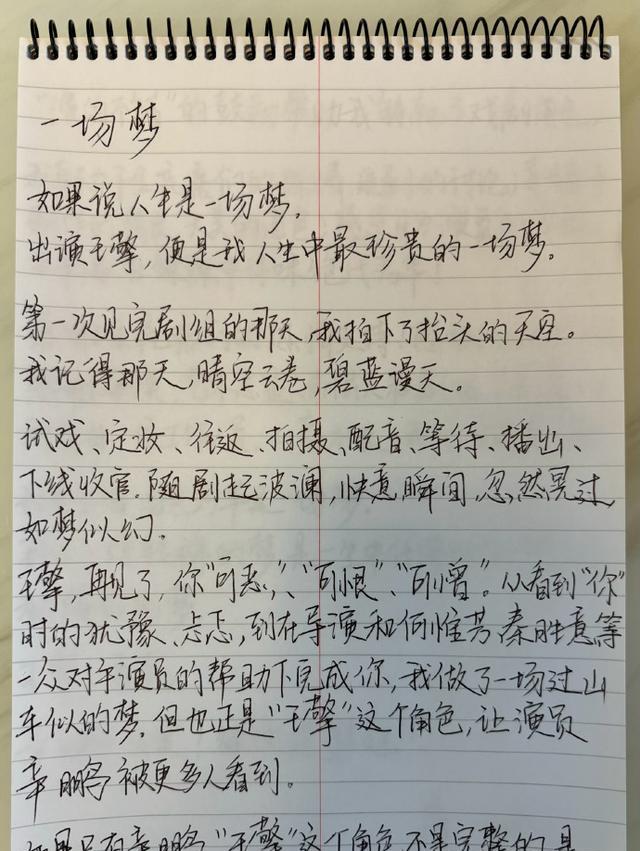 一场梦
如果说人生是一场梦,
出演王擎,便是我人生中最珍贵的一场梦。
第一次见完剧组的那天,我拍下了抬头的天空。
我记得那天,晴空云卷,碧蓝漫天。
试戏、定妆、往返、拍摄、配音、等待、播出、
下线收官.随剧起波澜,快意瞬间,忽然晃过
如梦似幻.
王擎,再见了,你“可恶”、“可恨”、“可憎”。从看到“你”
时的犹豫、忐忑,到在导演和何惟芳、秦胜意等
一众对手演员的帮助下完成你,我做了一场过山
车似的梦.但也正是“王擎”这个角色,让演员
辛鹏被更多人看到。
如果只有辛鹏,“王擎”这个角色不是完整的,是